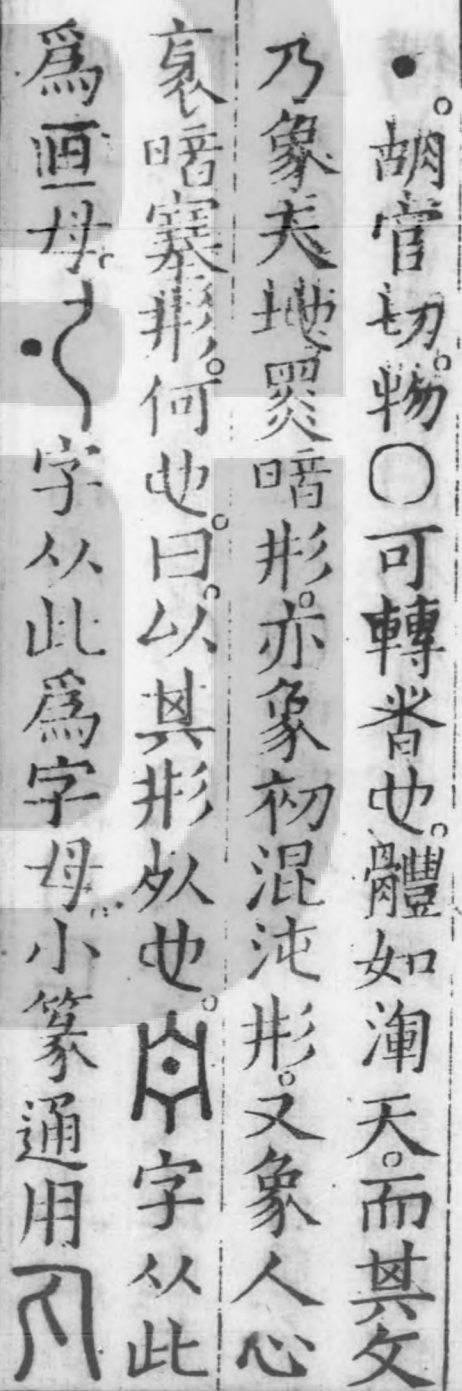 ●。胡官切。物〇可轉者也。體如渾天。而其文
乃象天地黑暗形。亦象初混沌形。又象人心
裏暗㝮形。何也。曰。以其形似也。字从此
爲畫母。字从此爲字母。小篆通用